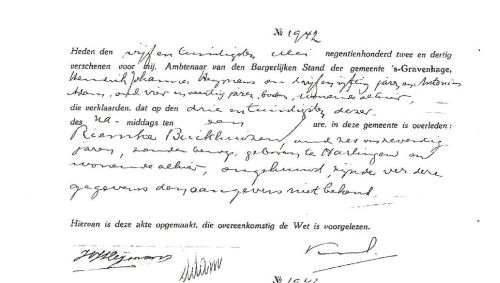 № 1942
Heden den vijf en twintigsten Mei negentienhonderd twee en dertig
verschenen voor mij, Ambtenaar van den Burgerlijken Stand der gemeente 's-Gravenhage,
Hendrik Johannes Heymans oud vijf en vijftig jaren en Antonius
oud vier en veertig jaren, beiden, wonende alhier,
die verklaarden, dat op den drie en twintigsten dezer,
des na-middags ten een ure, in deze gemeente is overleden:
Riemke Buickhuizen, oud zes en zeventig
jaren, zonder beroep, geboren te Harlingen en
wonende alhier, ongehuwd zijnde verdere
gegevens den aangevers niet bekend.
Hiervan is deze akte opgemaakt, die overeenkomstig de Wet is voorgelezen.
HJHeymans
№ 1942